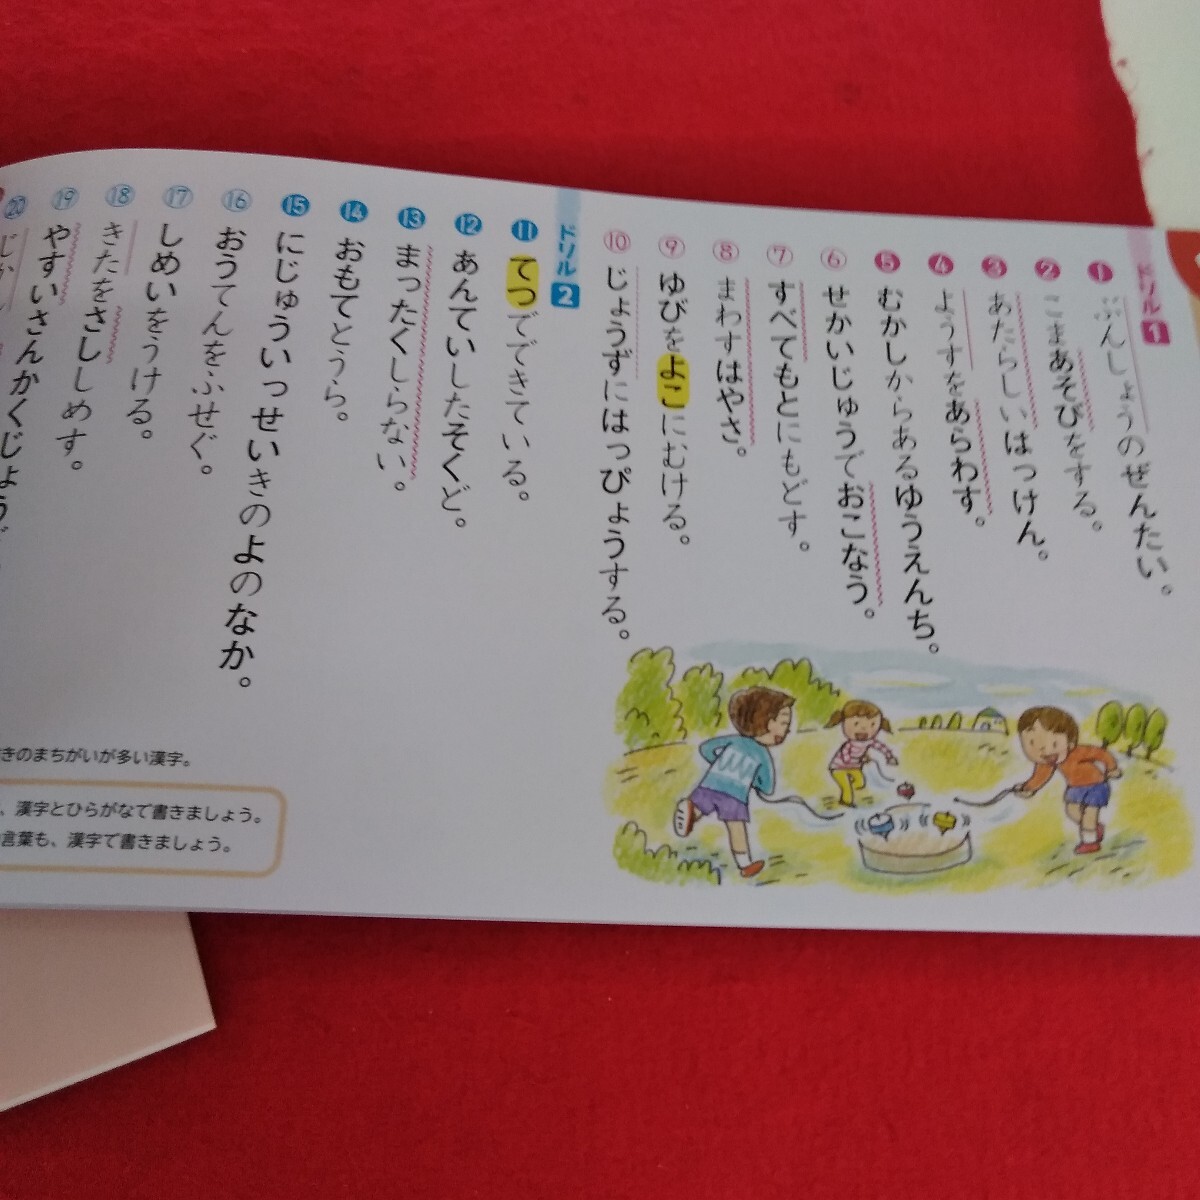 ドリル1
①ぶんしょうのぜんたい。
②こまあそびをする。
③あたらしいはっけん。
④ようすをあらわす。
⑤むかしからあるゆうえんち。
⑥せかいじゅうでおこなう。
⑦すべてもとにもどす。
⑧まわすはやさ。
⑨ゆびをよこにむける。
⑩じょうずにはっぴょうする。
ドリル2
⑪てつでできている。
⑫あんていしたそくど。
⑬まったくしらない。
⑭おもてとうら。
⑮にじゅういっせいきのよのなか。
⑯おうてんをふせぐ。
⑰しめいをうける。
⑱きたをさししめす。
⑲やすいさんかくじょうぎ。
⑳じかん
きのまちがいが多い漢字。
、漢字とひらがなで書きましょう。
言葉も、漢字で書きましょう。